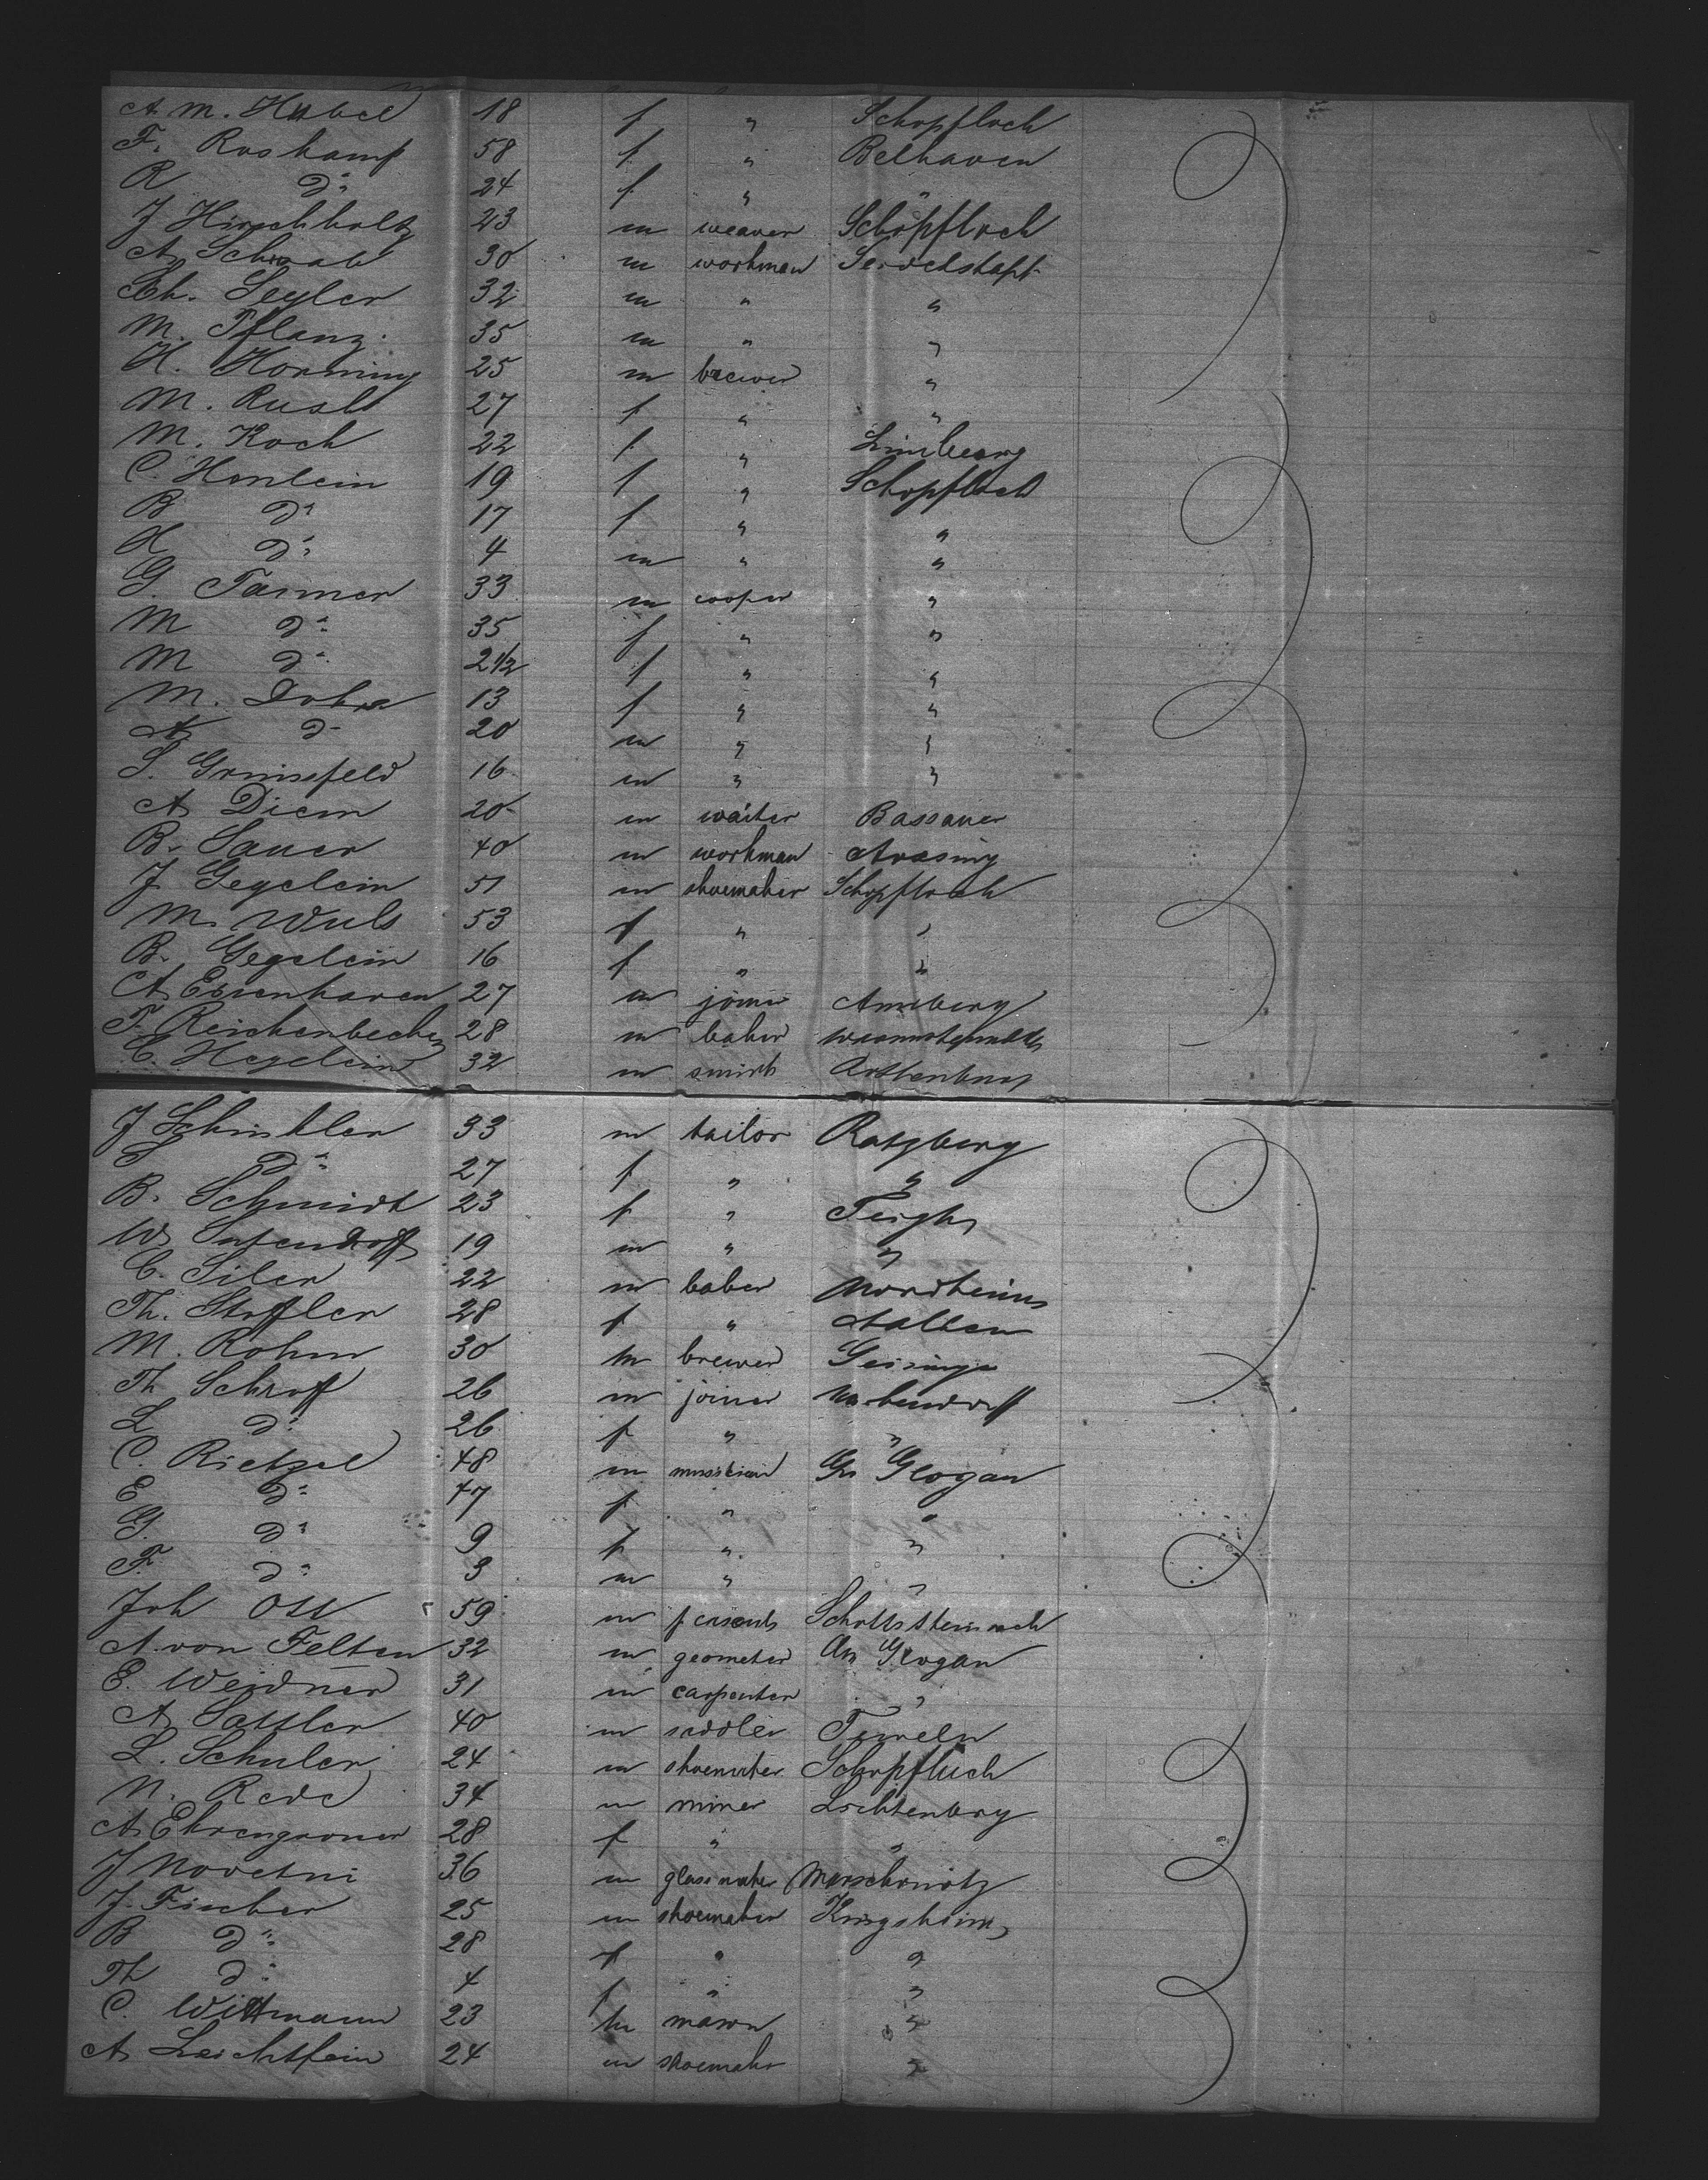 A. M. Habel 18 f " Schopfloch
F. Roskamp 58 f " Belhaven
R do 24 f " "
J Hirschholtz 23 m weaver Schöpfloch
A. Schwab 30 m workman
Ch. Seyler 32 m " "
M. Pflanz. 35 m " "
H. Horning 25 m brewer "
M. Rush 27 f " "
M. Koch 22 f "
C. Honlein 19 f " Schopfloch
B do 17 f " "
H do 4 m " "
G. Farmer 33 m cooper "
M do 35 f " "
M do 2 1/2 f " "
M. Dohra 13 f " "
A do 20 m " "
S. Grinsefeld 16 m " "
A Diem 20 m waiter Bassauer
B. Sauer 40 m workman Arasing
J Gegelein 51 m shoemaker Schopfloch
M. Wuls 53 f " "
B. Gegelein 16 f " "
A Essenhaven 27 m joiner Annberg
F. Reichenbecher 28 m baker
C. Hegelein 32 m smith
J Schindler 33 m tailor Ratzberg
S do 27 f " "
B. Schmidt 23 f "
W 19 m " "
C. Siler 22 m baker Nordheim
Th. Stoffler 28 f " Aalten
M. Rohm 30 m brewer
Th Schroff 26 m joiner
L do 26 f " "
C. Rietzel 48 m musician Gr Glogau
E do 47 f " "
G. do 9 f " "
F. do 3 m " "
Joh Ott 59 m Schottsteinach
A. von Felten 32 m geometer Gr Glogau
E. Weidner 31 m carpenter "
A Sattler 40 m saddler
L. Schuler 24 m shoemaker Schopfloch
N. Rede 34 m miner Lichtenberg
A. Ehrengroner 28 f " "
J Novetni 36 m glassmaker Marschowitz
J. Fischer 25 m shoemaker Kingsheim
B do 28 f " "
Th do 4 f " "
C. Wittmann 23 m mason "
A. 24 m shoemaker "